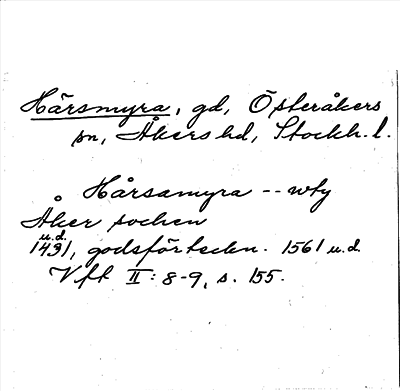 Hårsmyra, gd, Österåkers
sn, Åkers hd, Stockh. l.
Hårsamyra -- wty
Åker sochen
u.d.
1491, godsförteckn. 1561 u.d.
Vft II: 8-9, s. 155.